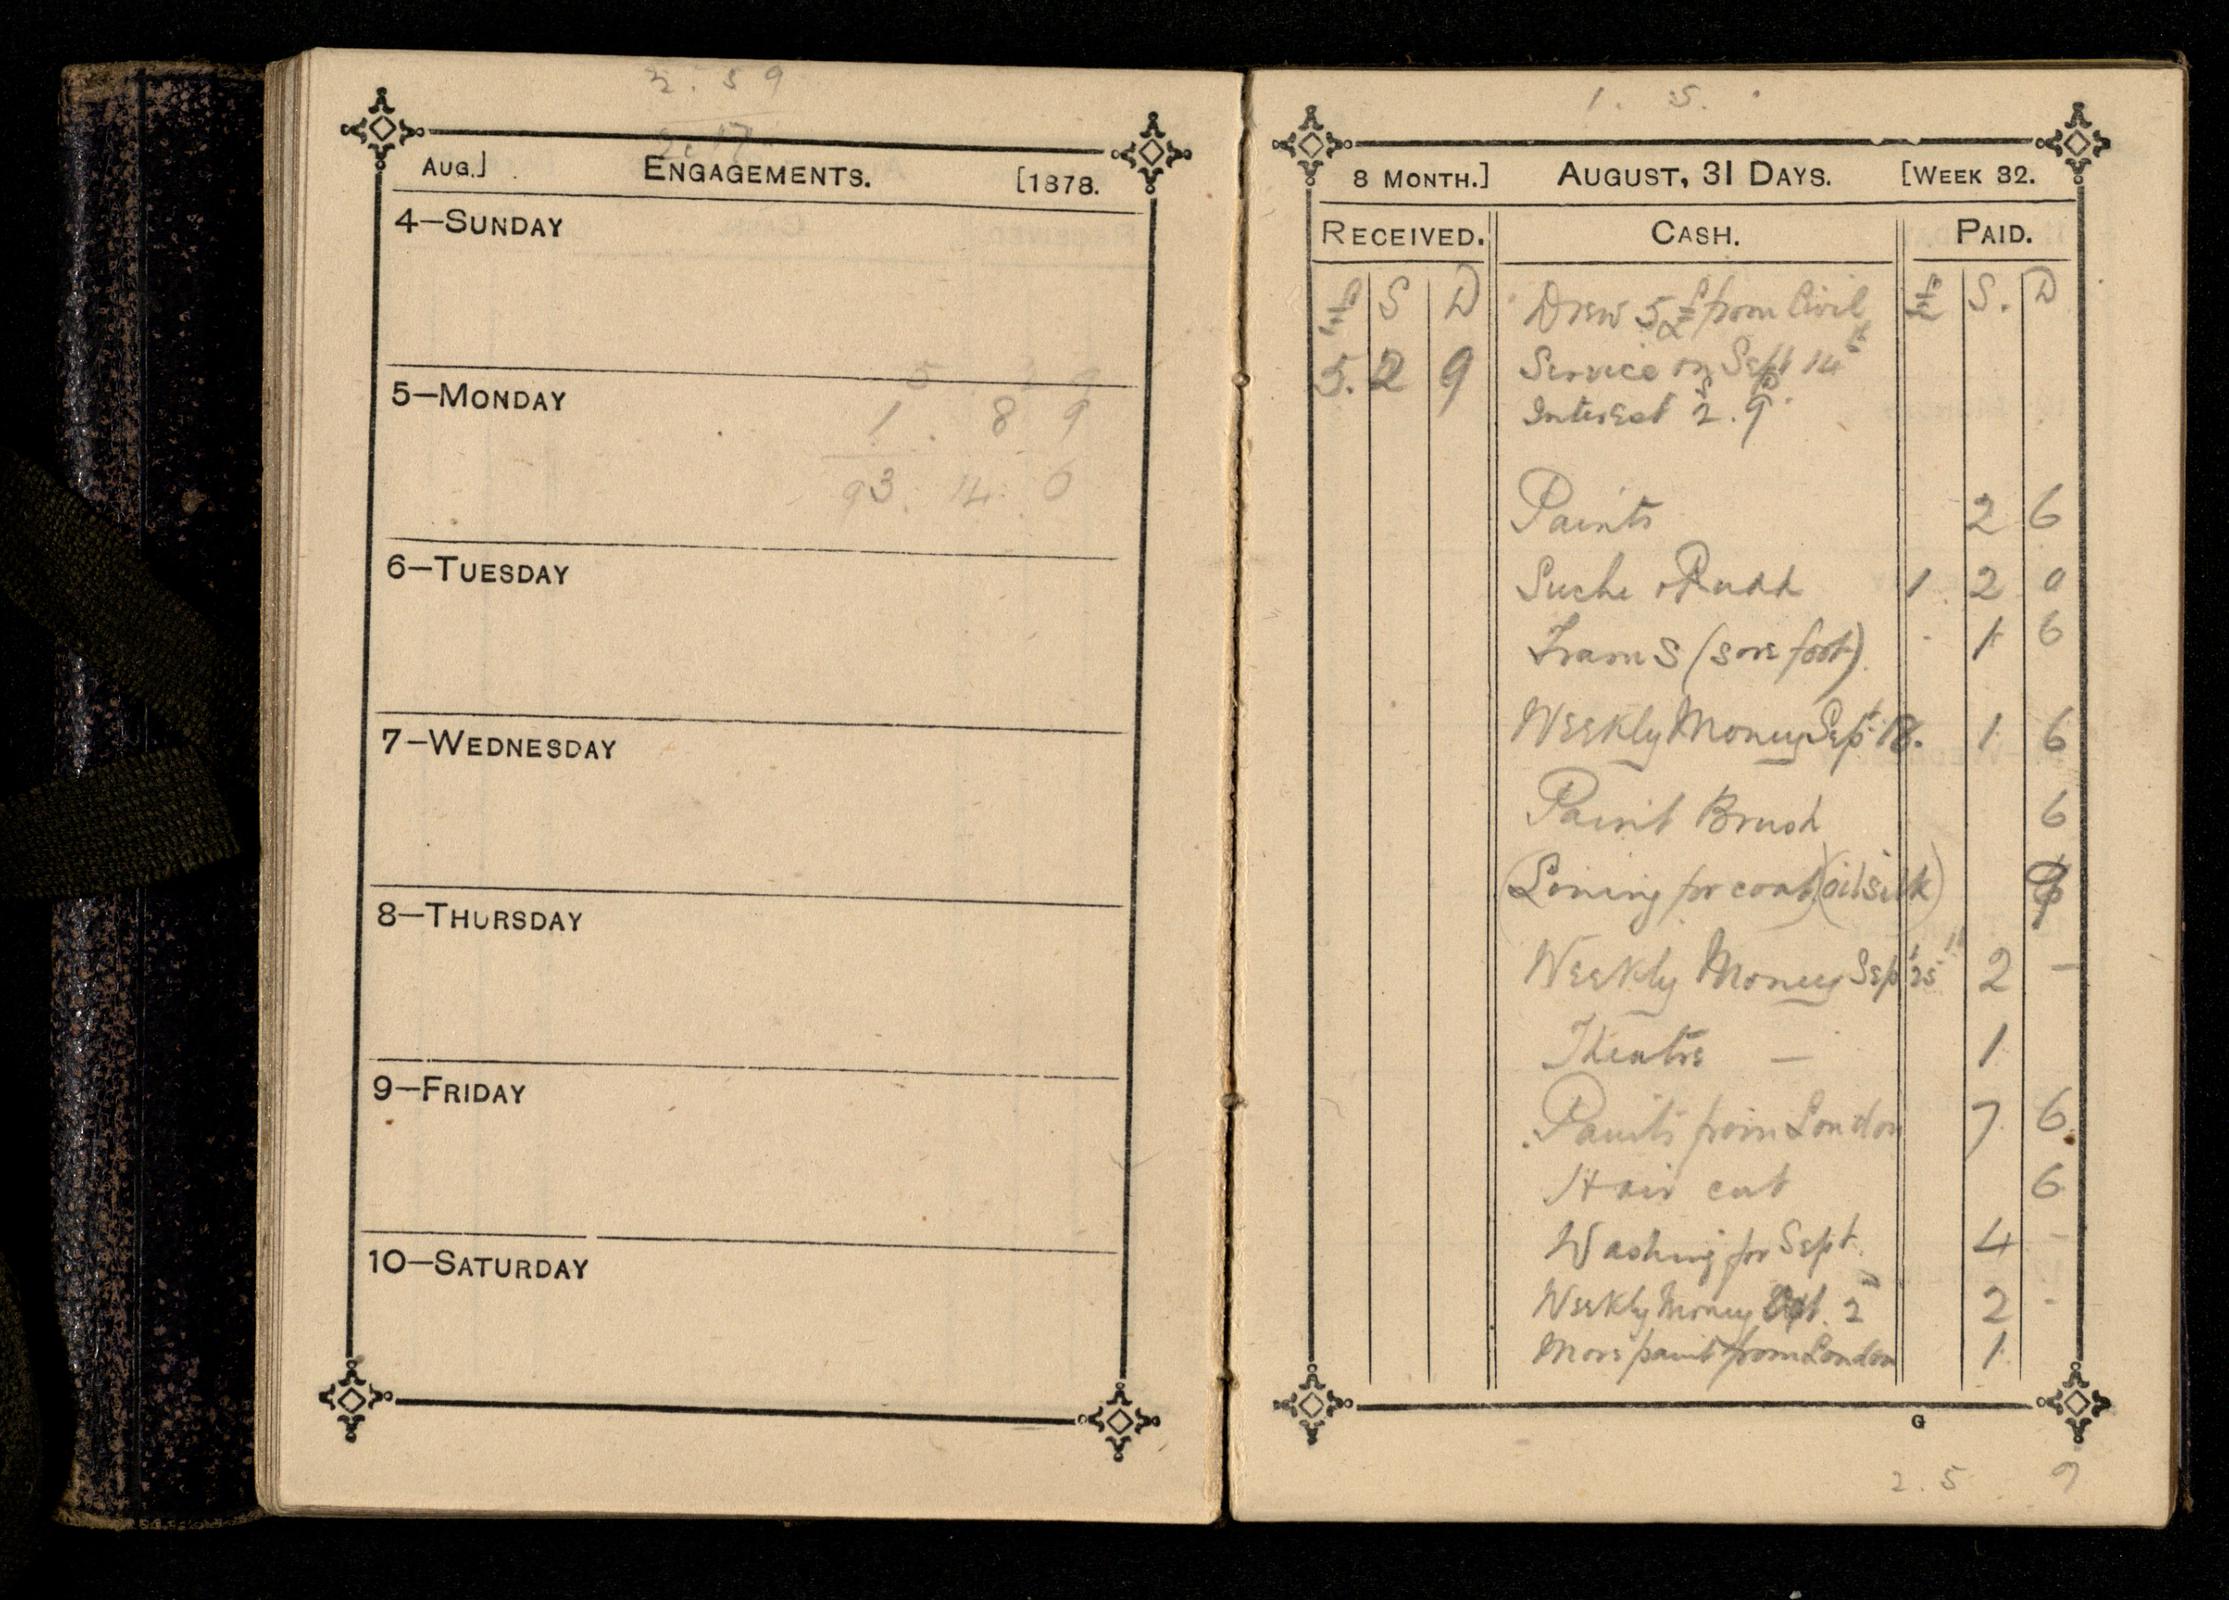 2. 5 9
2. 17
AUG.] ENGAGEMENTS. [1878.
4—SUNDAY
5—MONDAY
5 2 9
1. 8 9
93. 14. 0
6—TUESDAY
7—WEDNESDAY
8—THURSDAY
9—FRIDAY
10—SATURDAY
1. 5.
8 MONTH.] AUGUST, 31 DAYS. [WEEK 32.
RECEIVED. CASH. PAID.
£ S D Drew 5£ from Civil £ S. D
5. 2 9 Service on Sept 14th
Interest 2s. 9d.
Paints 2 6
1 2 0
Trams (sore foot). 1 6
Weekly Money Sept. 18. 1 6
Paint Brush 6
(Lining for coat) (oil silk) 9
Weekly Money Sept 25th 2 –
Theatre — 1
Paints from London 7 6
Hair cut 6
Washing for Sept. 4 –
Weekly Money Oct. 2nd 2 -
More paint from London 1
G
2. 5 9